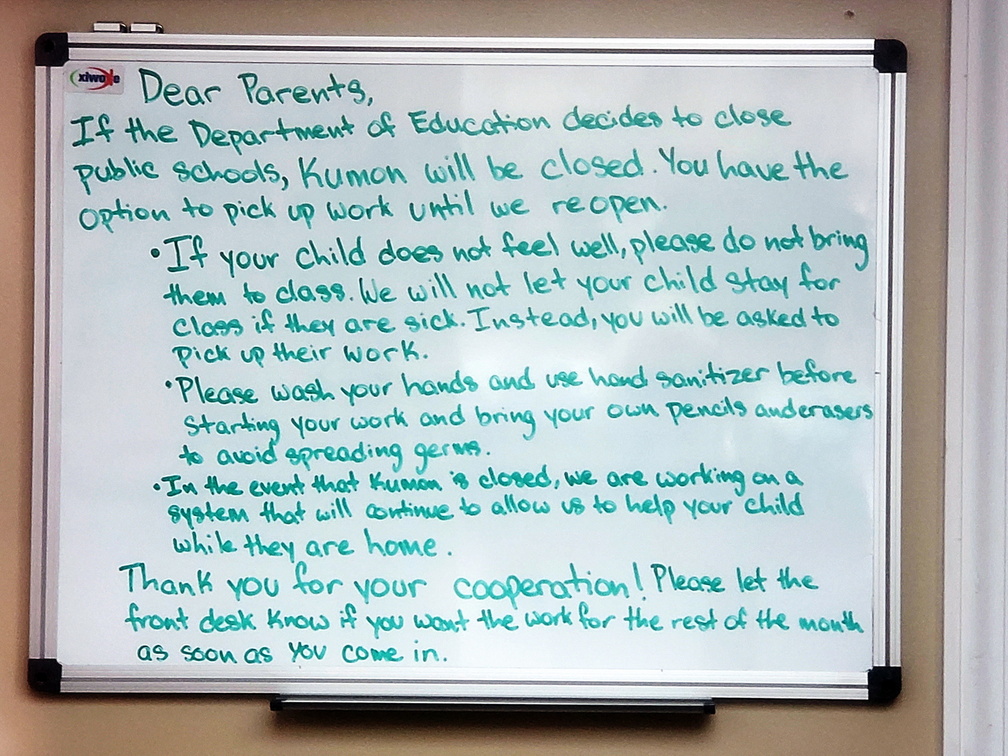 xiwode
Dear Parents,
If the Department of Education decides to close
public schools, Kumon will be closed. You have the
option to pick up work until we reopen.
• If your child does not feel well, please do not bring
them to class. We will not let your child stay for
class if they are sick. Instead, you will be asked to
pick up their work.
• Please wash your hands and use hand sanitizer before
starting your work and bring your own pencils and erasers
to avoid spreading germs.
• In the event that Kumon is closed, we are working on a
system that will continue to allow us to help your child
while they are home.
Thank you for your cooperation! Please let the
front desk know if you want the work for the rest of the month
as soon as you come in.